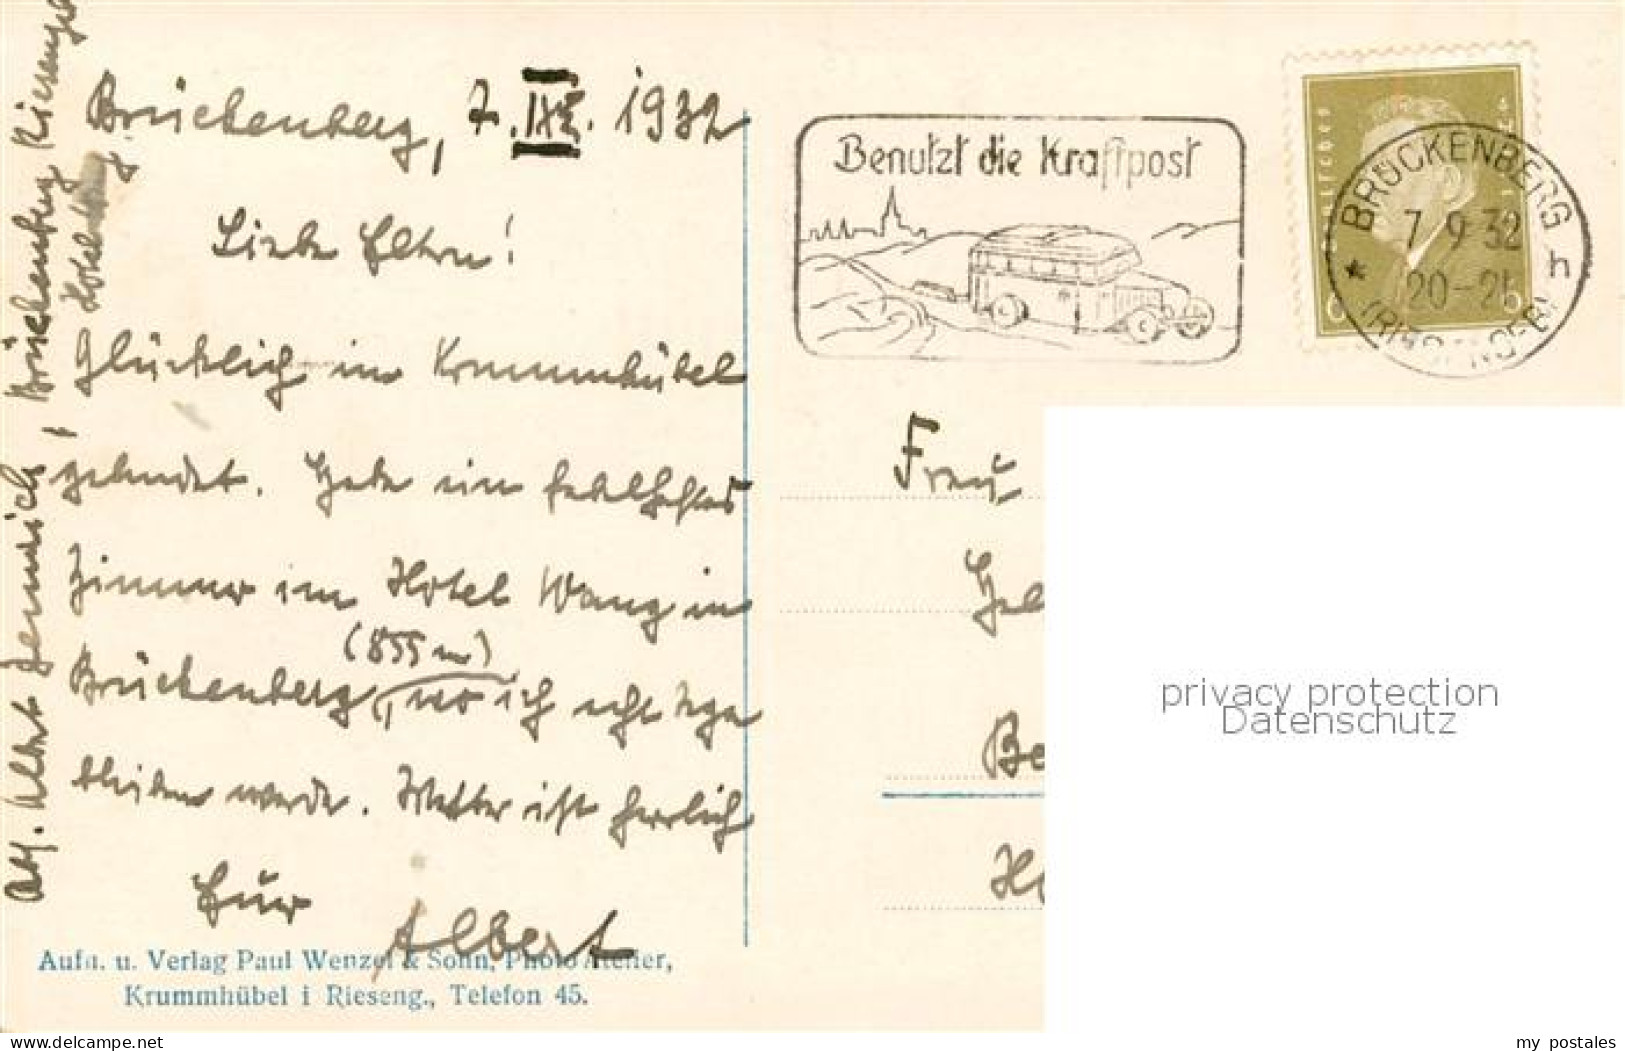 Brückenberg, 7. IX. 1932
Liebe Eltern!
Glücklich in Krummhübel
gelandet. Habe ein fabelhaftes
Zimmer im Hotel Wang in
Brückenberg (855 m), wo ich
bleiben werde. Wetter ist herrlich
Euer
Albert
Abs. Albert Brückenberg Rieseng
Hotel Wang
Aufn. u. Verlag Paul Wenzel & Sohn, Photo Atelier,
Krummhübel i Rieseng., Telefon 45.
Benutzt die Kraftpost
BRÜCKENBERG
7 9 32
20-21 h
(RIESENGEB)
6 6
Frau
privacy protection
Datenschutz
delcampe.net
my_postales